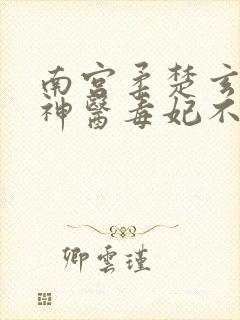 南宫柔楚玄
神醫毒妃不
卿雲瑾